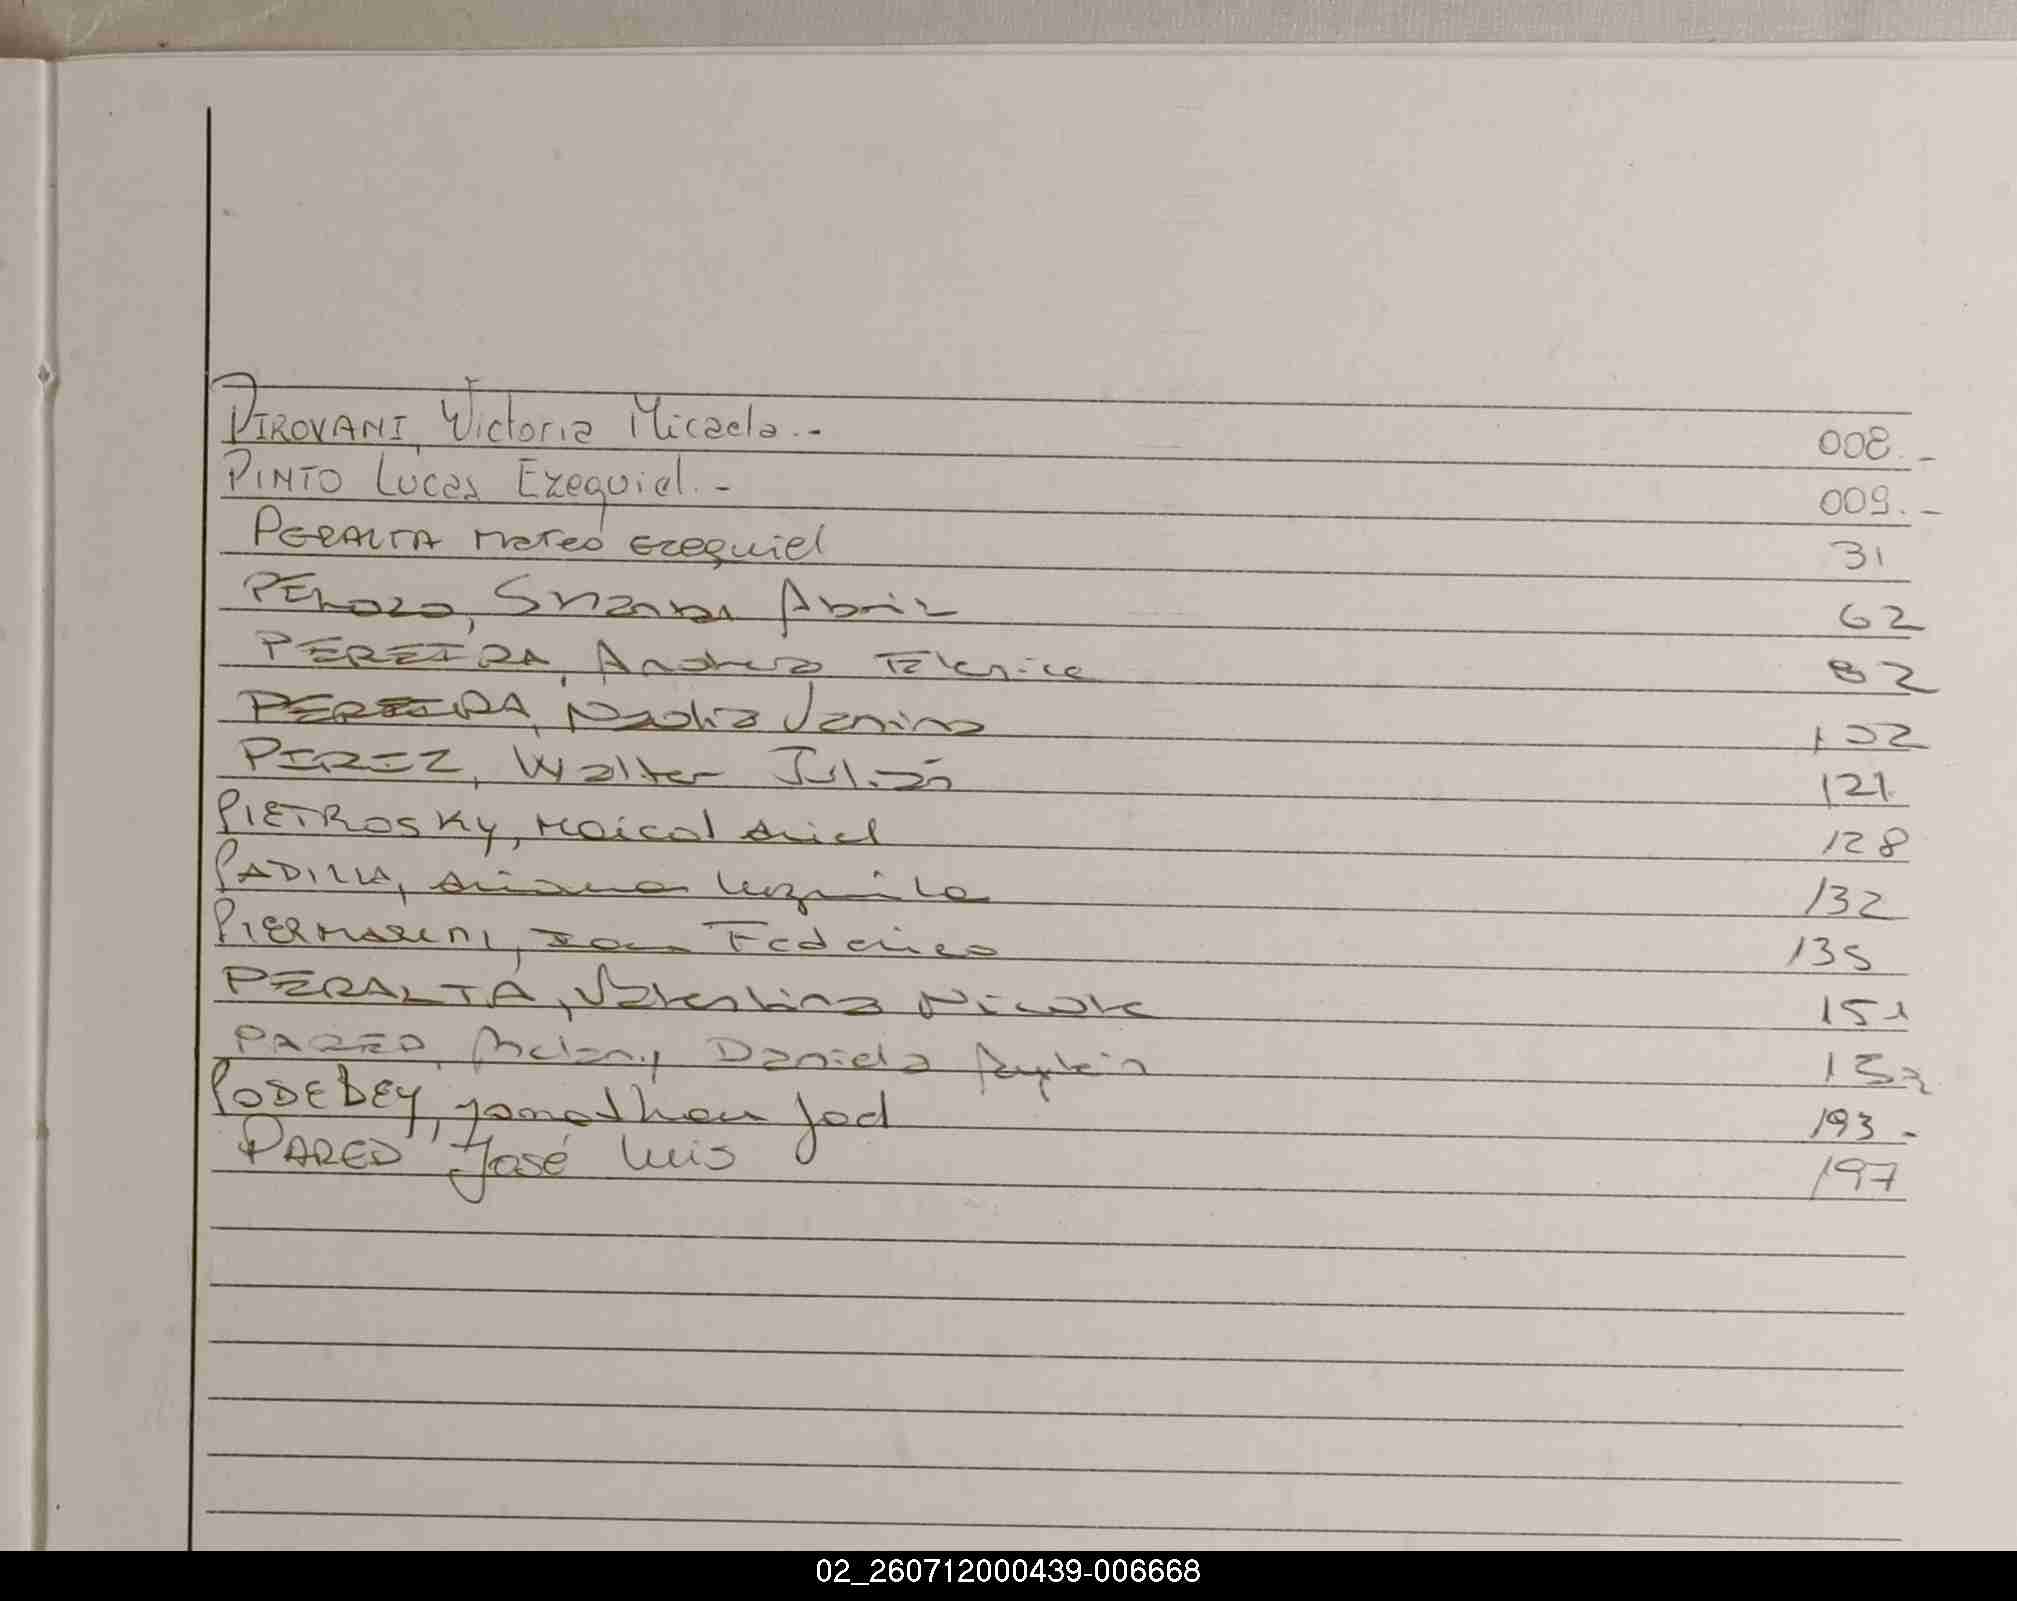 PIROVANI, Victoria Micaela.- 008.-
PINTO Lucas Ezequiel.- 009.-
PERALTA Mateo Ezequiel 31
PEROZO, Abril 62
PEREIRA, Andrea 82
PEREIRA, Nadia Janina 102
PEREZ, Walter Julián 121
PIETROSKY, Maicol Ariel 128
PADILLA, Ariana Luzmila 132
PIERMARINI, Federico 135
PERALTA, Valentina Nicole 151
PARED, Melany Daniela 152
PODEBEY, Jonathan Joel 193-
PARED, José Luis 197
02_260712000439-006668